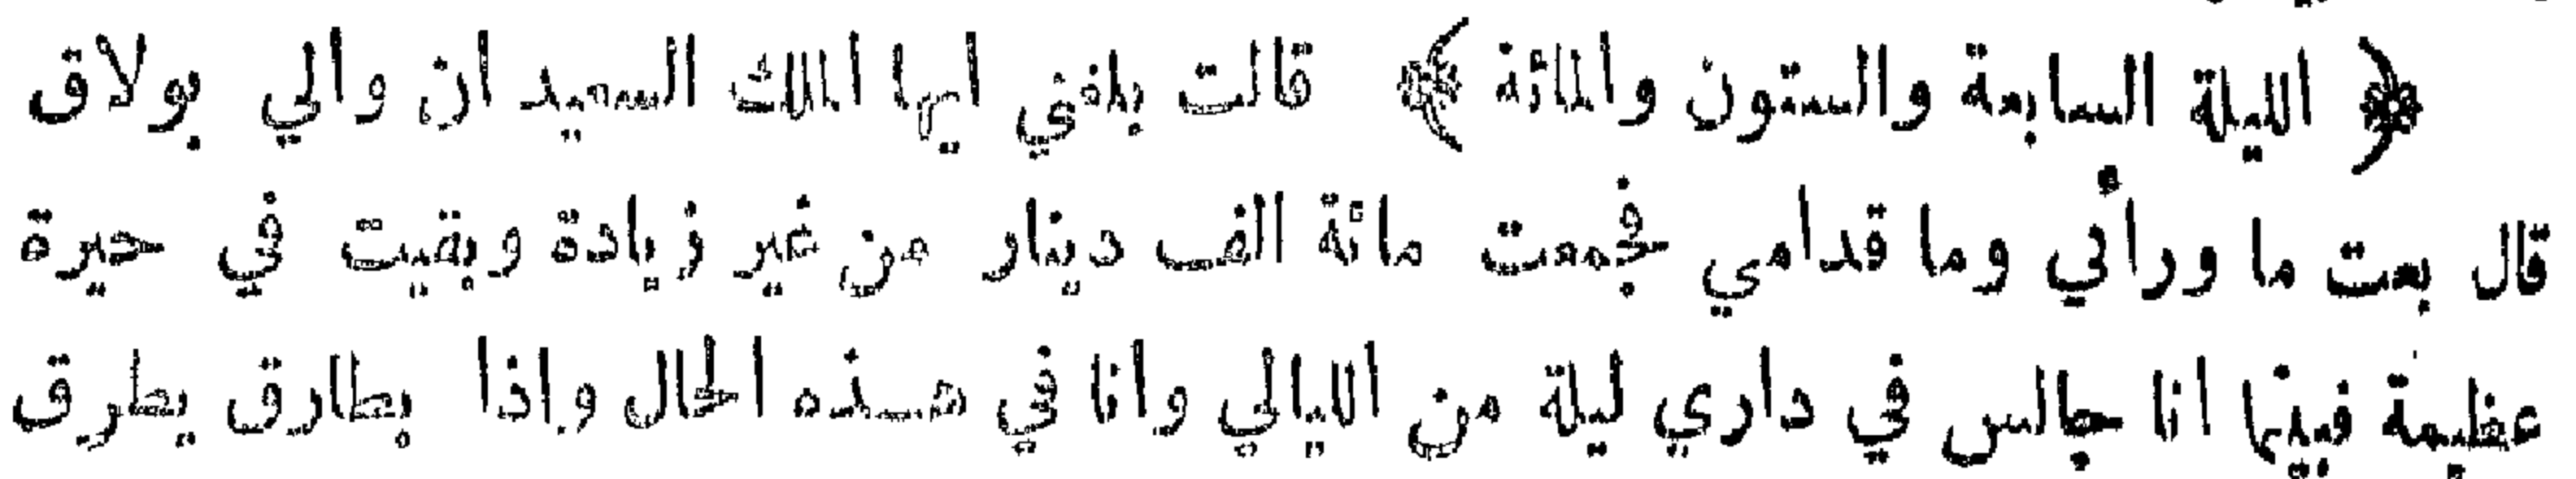 ﴿ الليلة السابعة والستون والمائة ﴾ قالت بلغني ايها الملك السعيد ان والي بولاق
قال بعت ما ورأئي وما قدامي فجمعت مائة الف دينار من غير زيادة وبقيت في حيرة
عظيمة فبينما انا جالس في داري ليلة من الليالي وانا في هذه الحال واذا بطارق يطرق